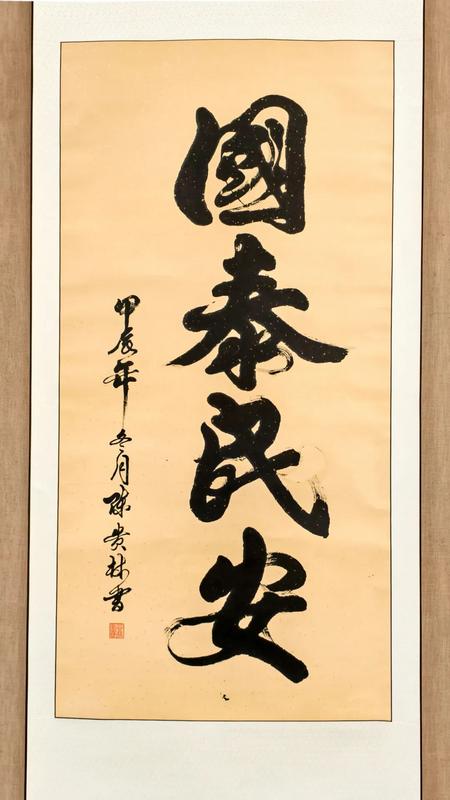 國泰民安
甲辰年冬月陳貴林書